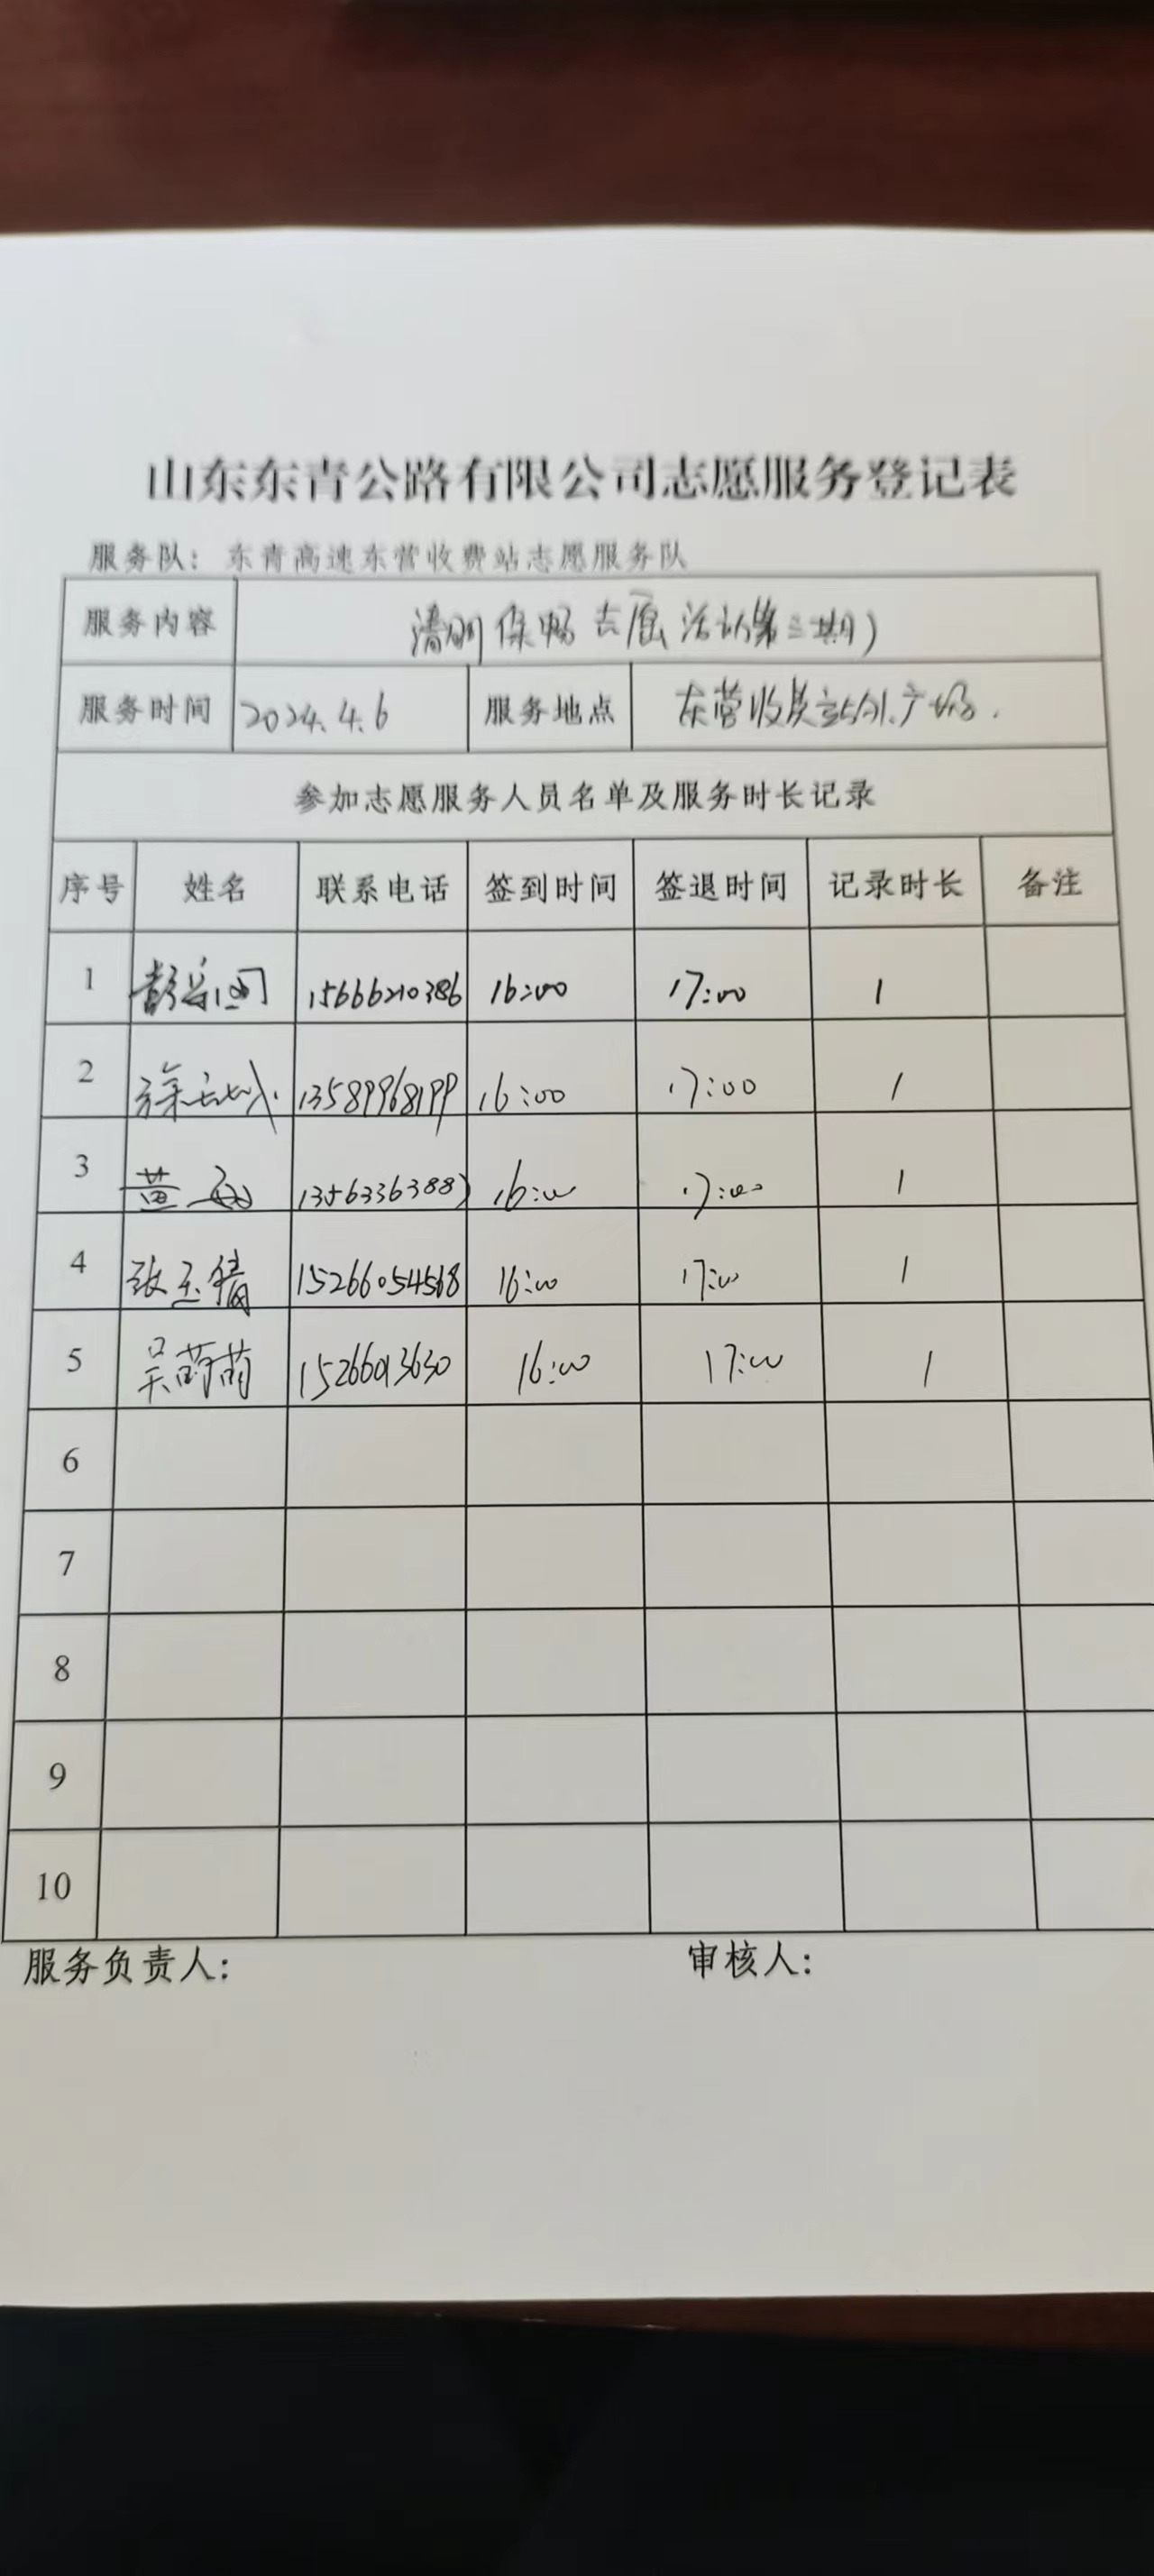 山东东青公路有限公司志愿服务登记表
服务队：东青高速东营收费站志愿服务队
服务内容 清明保畅志愿活动(第三期)
服务时间 2024.4.6 服务地点 东营收费站外广场.
参加志愿服务人员名单及服务时长记录
序号 姓名 联系电话 签到时间 签退时间 记录时长 备注
1 15666210386 16:00 17:00 1
2 13589968199 16:00 17:00 1
3 黄 16:00 17:00 1
4 张玉倩 15266054568 16:00 17:00 1
5 吴萌萌 16:00 17:00 1
6
7
8
9
10
服务负责人： 审核人：